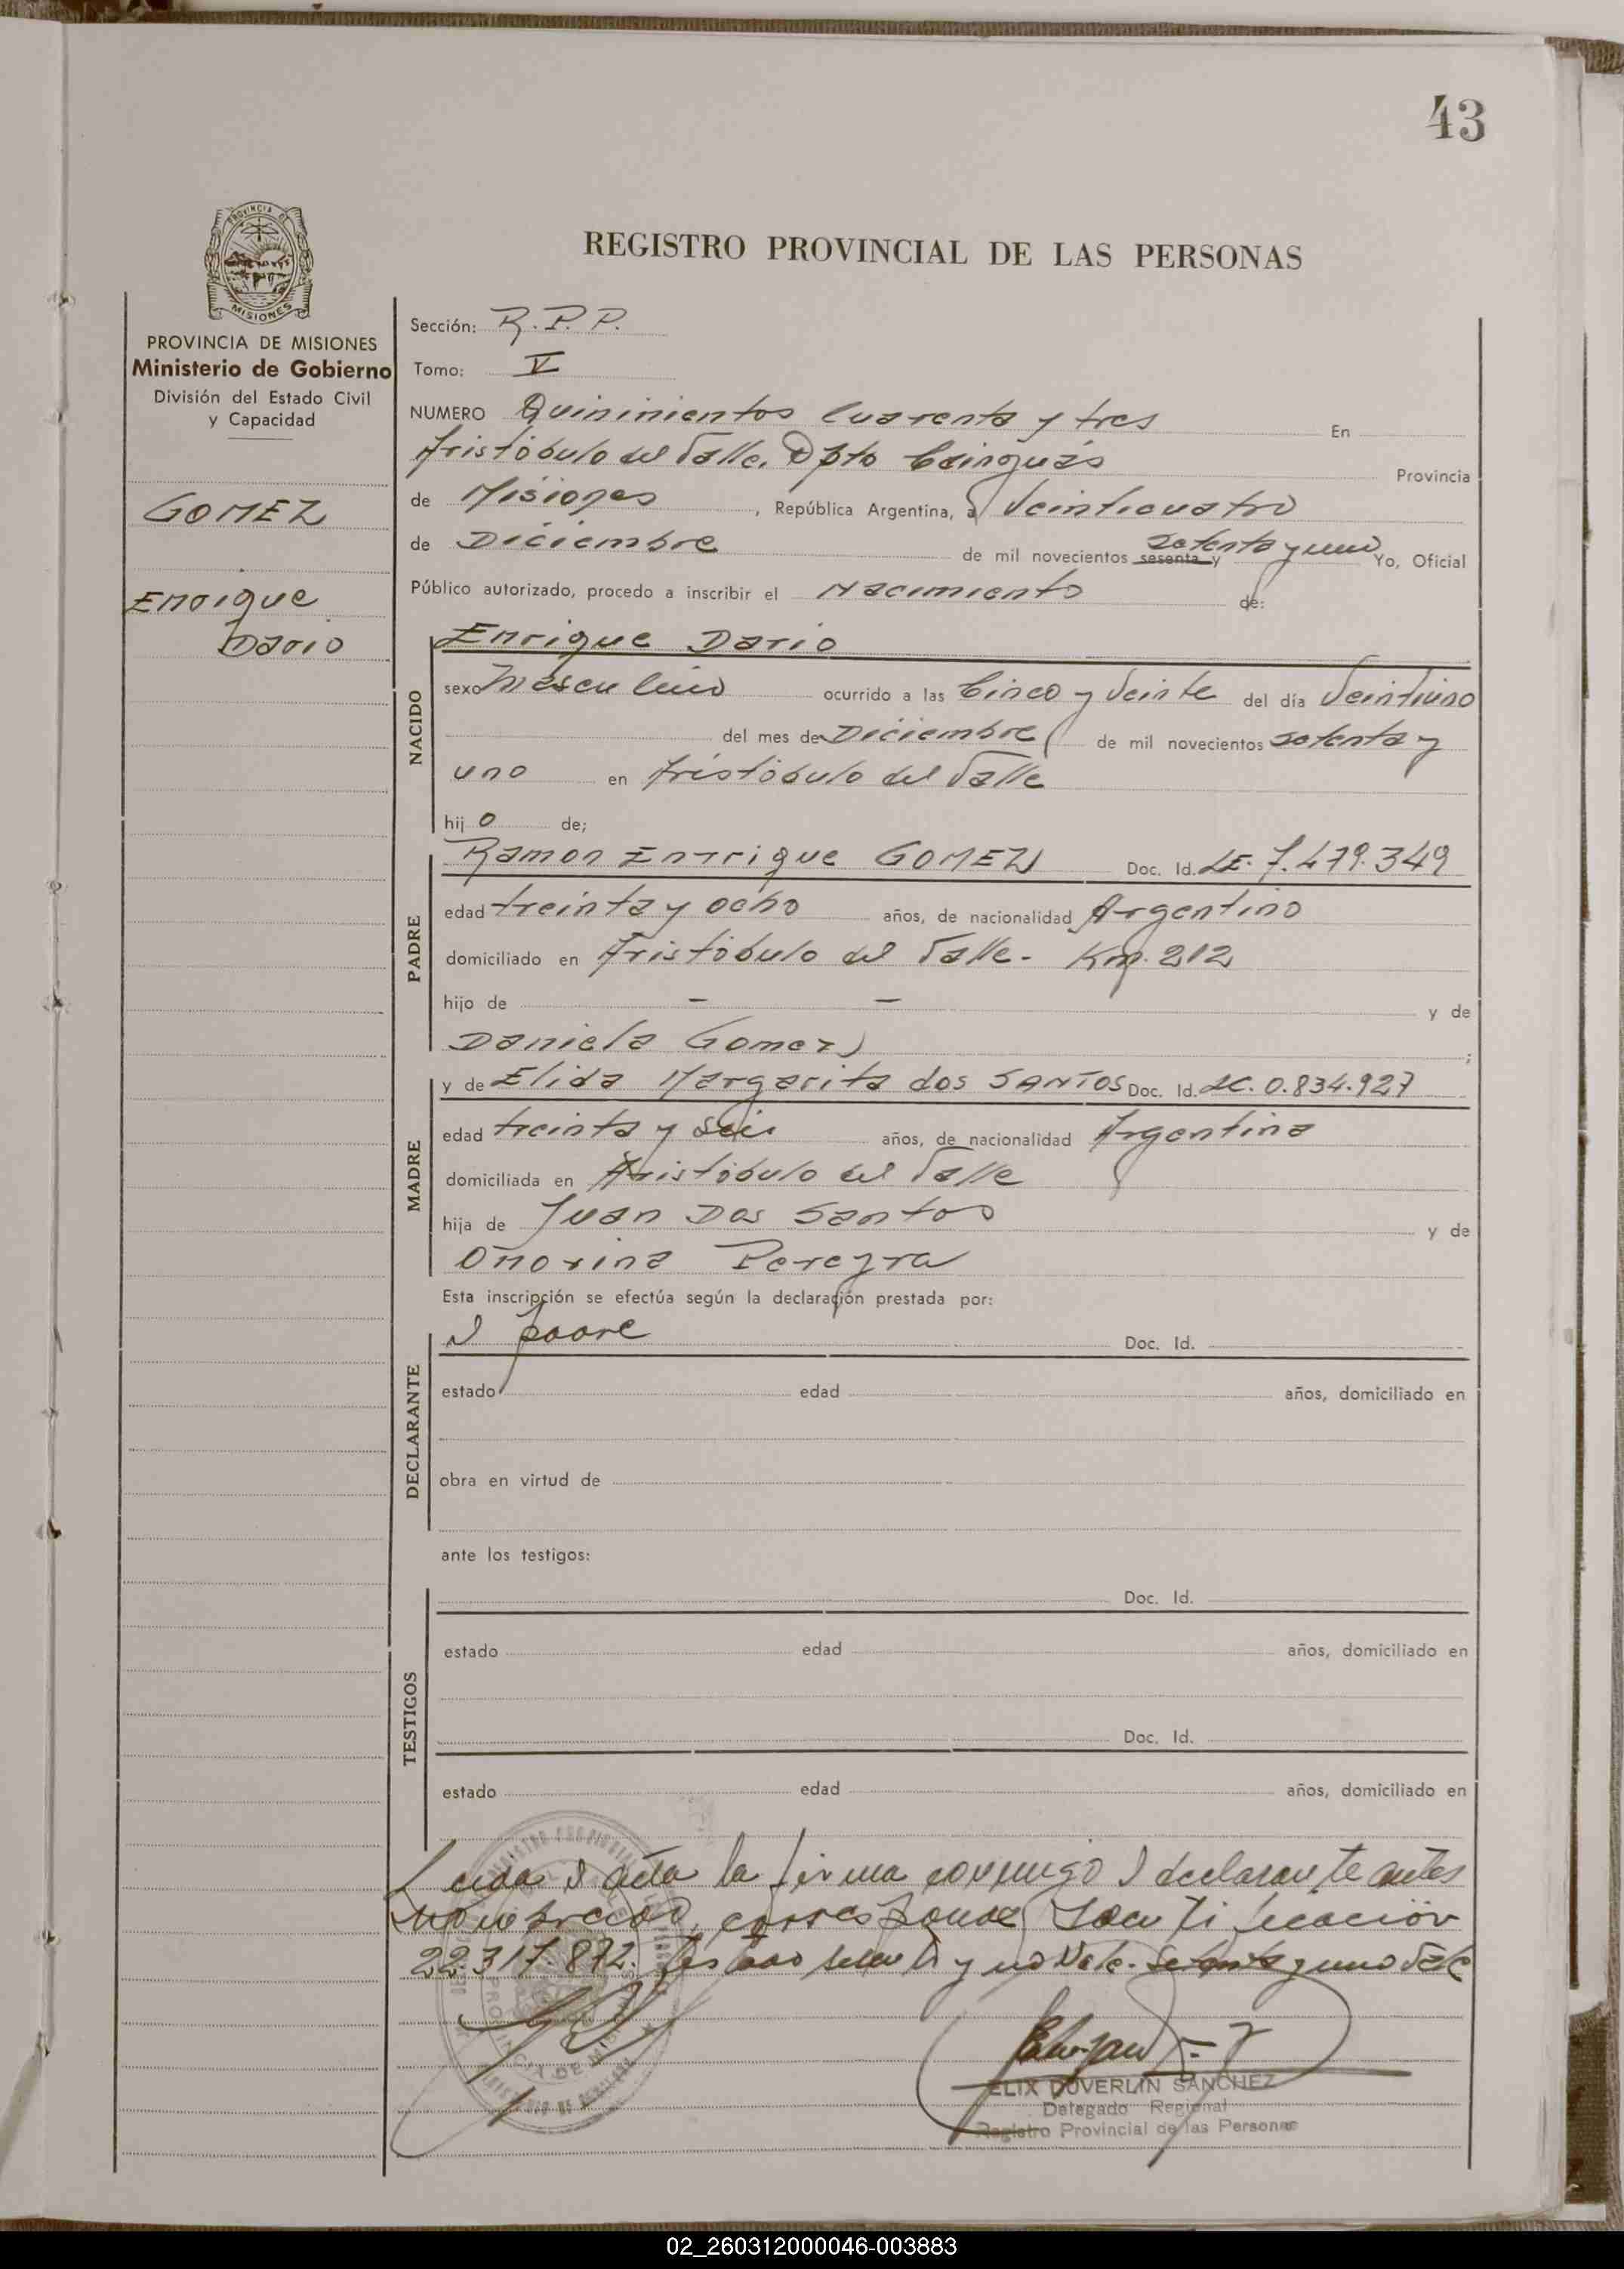 43
PROVINCIA DE
MISIONES
REGISTRO PROVINCIAL DE LAS PERSONAS
PROVINCIA DE MISIONES
Ministerio de Gobierno
División del Estado Civil
y Capacidad
GOMEZ
Enrique
Dario
Sección: R.P.P.
Tomo: V
NUMERO Quininientos Cuarenta y tres En
Aristóbulo del Valle. Dpto Cainguás Provincia
de Misiones, República Argentina, a Veinticuatro
de Diciembre de mil novecientos sesenta y setenta y uno Yo, Oficial
Público autorizado, procedo a inscribir el Nacimiento de:
NACIDO
Enrique Dario
sexo Masculino ocurrido a las Cinco y Veinte del día Veintiuno
del mes de Diciembre de mil novecientos setenta y
uno en Aristóbulo del Valle
hij o de;
PADRE
Ramon Enrrique GOMEZ Doc. Id. LE. 7.479.349
edad treinta y ocho años, de nacionalidad Argentino
domiciliado en Aristóbulo del Valle - Km. 212
hijo de - - y de
Daniela Gomez ;
MADRE
y de Elida Margarita dos SANTOS Doc. Id. LC. 0.834.927
edad treinta y seis años, de nacionalidad Argentina
domiciliada en Aristóbulo del Valle
hija de Juan Dos Santos y de
Onorina Pereyra
Esta inscripción se efectúa según la declaración prestada por:
DECLARANTE
el padre Doc. Id.
estado edad años, domiciliado en
obra en virtud de
ante los testigos:
TESTIGOS
Doc. Id.
estado edad años, domiciliado en
Doc. Id.
estado edad años, domiciliado en
Leida el acta la firma conmigo el declarante antes
nombrado, corresponde Identificación
22.317.872. Testado sesenta y no Vale. Setenta y uno Vale
ELIX DUVERLIN SANCHEZ
Delegado Regional
Registro Provincial de las Personas
02_260312000046-003883